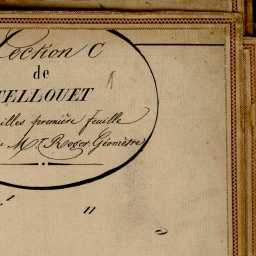 Section C
de
TELLOUET
illes première feuille
Mr Roger Géomètre